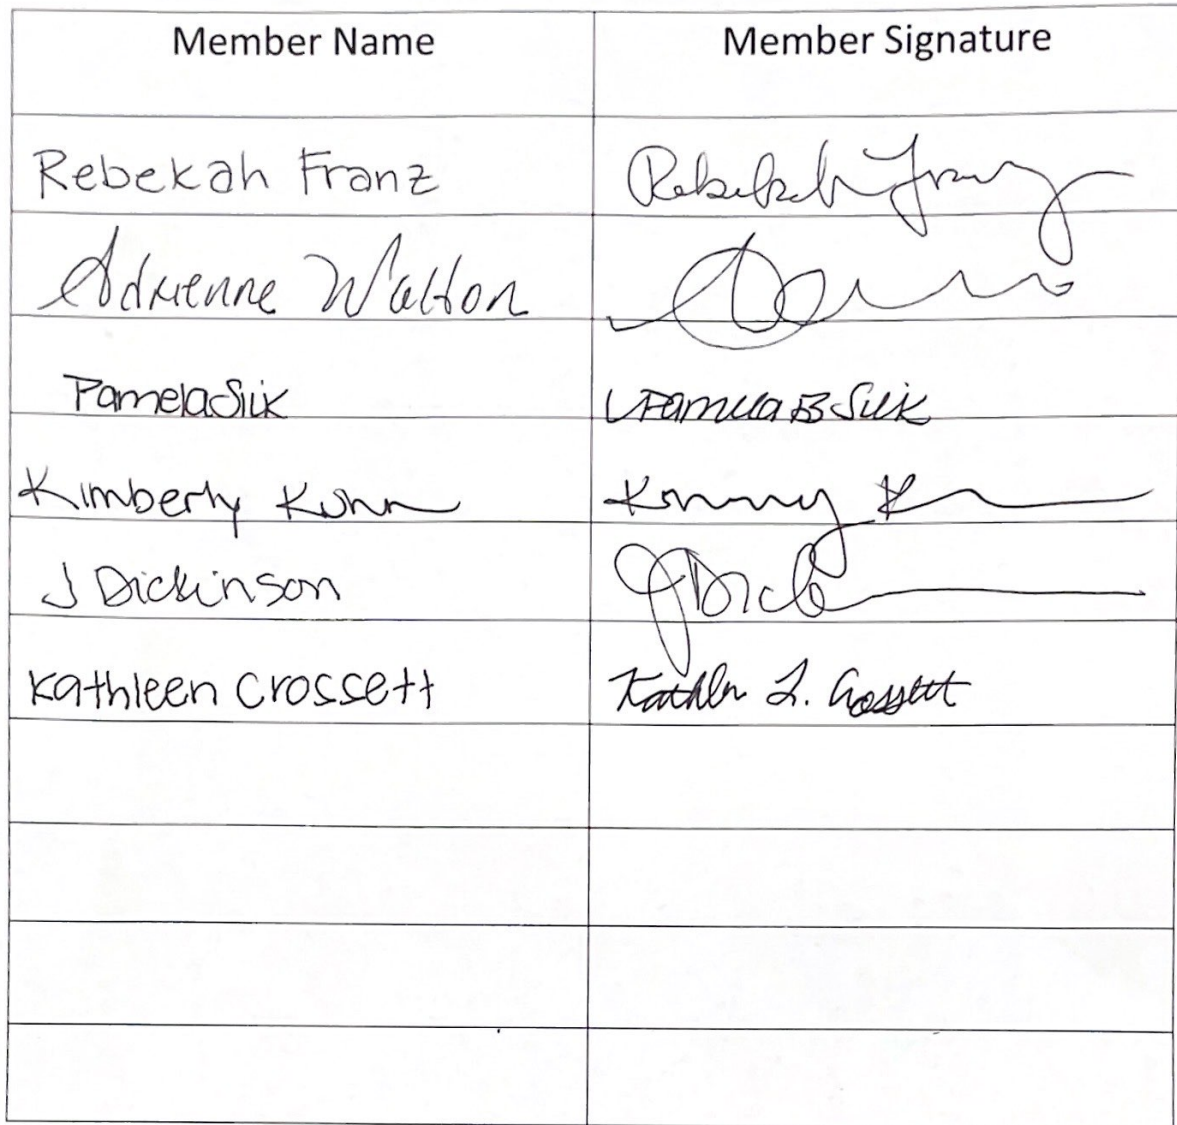 Member Name Member Signature
Rebekah Franz Rebekah Franz
Adrienne Walton
Pamela Silk Pamela B Silk
Kimberly Kuhn
J Dickinson
Kathleen Crossett Kathleen L. Crossett